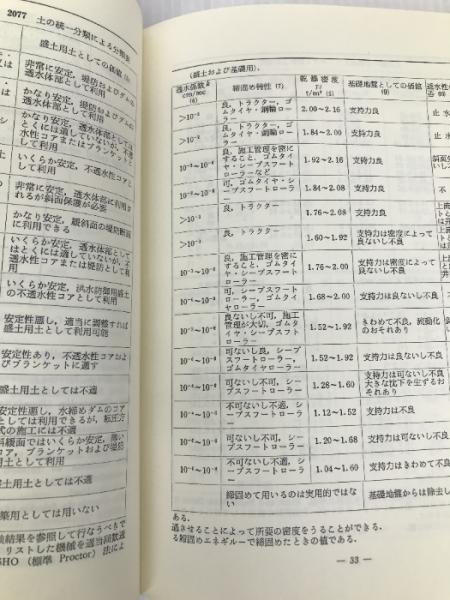 2077 土の統一分類による分類表
盛土用土としての価値 (5)
非常に安定，堤防およびダムの
透水体部として利用
かなり安定，堤防およびダムの
透水体部として利用
かなり安定，堤防透水体部とし
てとくには適していないが，不
透水性コアまたはブランケットに
利用
いくらか安定，不透水性コアとし
て利用
非常に安定，透水体部に利用さ
れるが斜面保護が必要
かなり安定，緩斜面の堤防断面
に利用できる
いくらか安定，透水体部として
はとくには適していないが，
水性コアまたは堤防として利
いくらか安定，洪水防御用盛土
の不透水性コアとして利用
安定性悪し，適当に調整すれば
盛土用土として利用可能
安定性あり，不透水性コアおよ
びブランケットに適す
盛土用土としては不適
安定性悪し，水締めダムのコア
としては利用できるが，転圧方
式の施工には不適
斜緩面ではいくらか安定，薄い
コア，ブランケットおよび堤防
用土として利用
盛土用土としては不適
築用としては用いない
験結果を参照して行なうべきで
リストした機械を適当回数通
SHO (標準 Proctor) 法によ
(盛土および基礎用)．
透水係数 k
cm/sec
(6)
締固め特性 (7)
乾燥密度
γd
t/m³ (8)
基礎地盤としての価値
(9)
>10⁻²
良，トラクター，ゴム
タイヤ・鋼輪ローラー
2.00～2.16
支持力良
>10⁻²
良，トラクター，ゴム
タイヤ・鋼輪ローラー
1.84～2.00
支持力良
良，施工管理を密に
すること，ゴムタイ
ヤ・シープスフート
ローラーなど
1.92～2.16
支持力良
可，ゴムタイヤ・シ
ープスフートローラ
ー
1.84～2.08
支持力良
良，トラクター
1.76～2.08
支持力良
良，トラクター
1.60～1.92
支持力は密度によって
良ないし不良
良，施工管理を密に
すること，ゴムタイ
ヤ・シープスフート
ローラー
1.76～2.00
支持力は密度によって
良ないし不良
可，シープスフート
ローラー，ゴムタイ
ヤローラー
1.68～2.00
支持力は良ないし不良
良ないし不可，施工
管理が大切，ゴムタ
イヤ・シープスフート
ローラー
1.52～1.92
きわめて不良，流動化
のおそれあり
可ないし良，シープ
スフートローラー，
ゴムタイヤローラー
1.52～1.92
支持力は良ないし不良
可ないし不可，シー
プスフートローラー
1.28～1.60
支持力は可ないし不良
大きな沈下を生ずるお
それあり
不可ないし不適，シ
ープスフートローラー
1.12～1.52
支持力は不良
可ないし不可，シー
プスフートローラー
1.20～1.68
支持力は可ないし不良
不可ないし不適，シ
ープスフートローラー
1.04～1.60
支持力はきわめて不良
締固めて用いるのは実用的ではな
い
基礎地盤からは除去し
ある．
通させることによって所要の密度をうることができる．
る締固めエネギルーで締固めたときの値である．
— 33 —